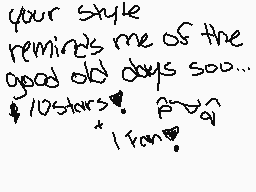 your style
reminds me of the
good old days soo...
10stars
+
1 Fan